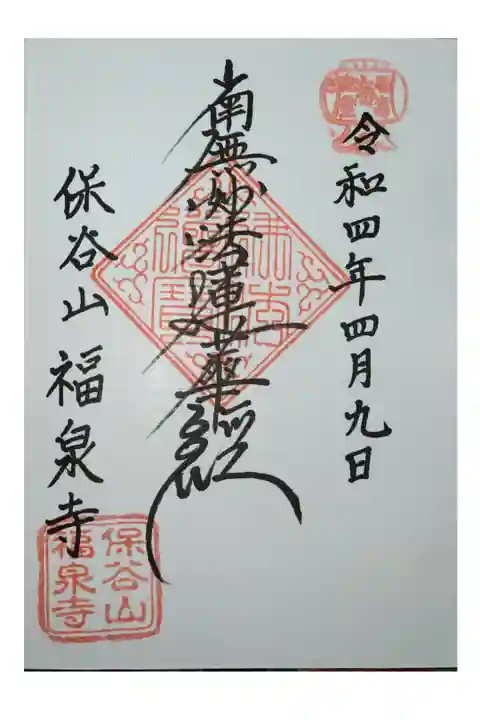 令和四年四月九日
南無妙法蓮華經
保谷山 福泉寺
保谷山
福泉寺